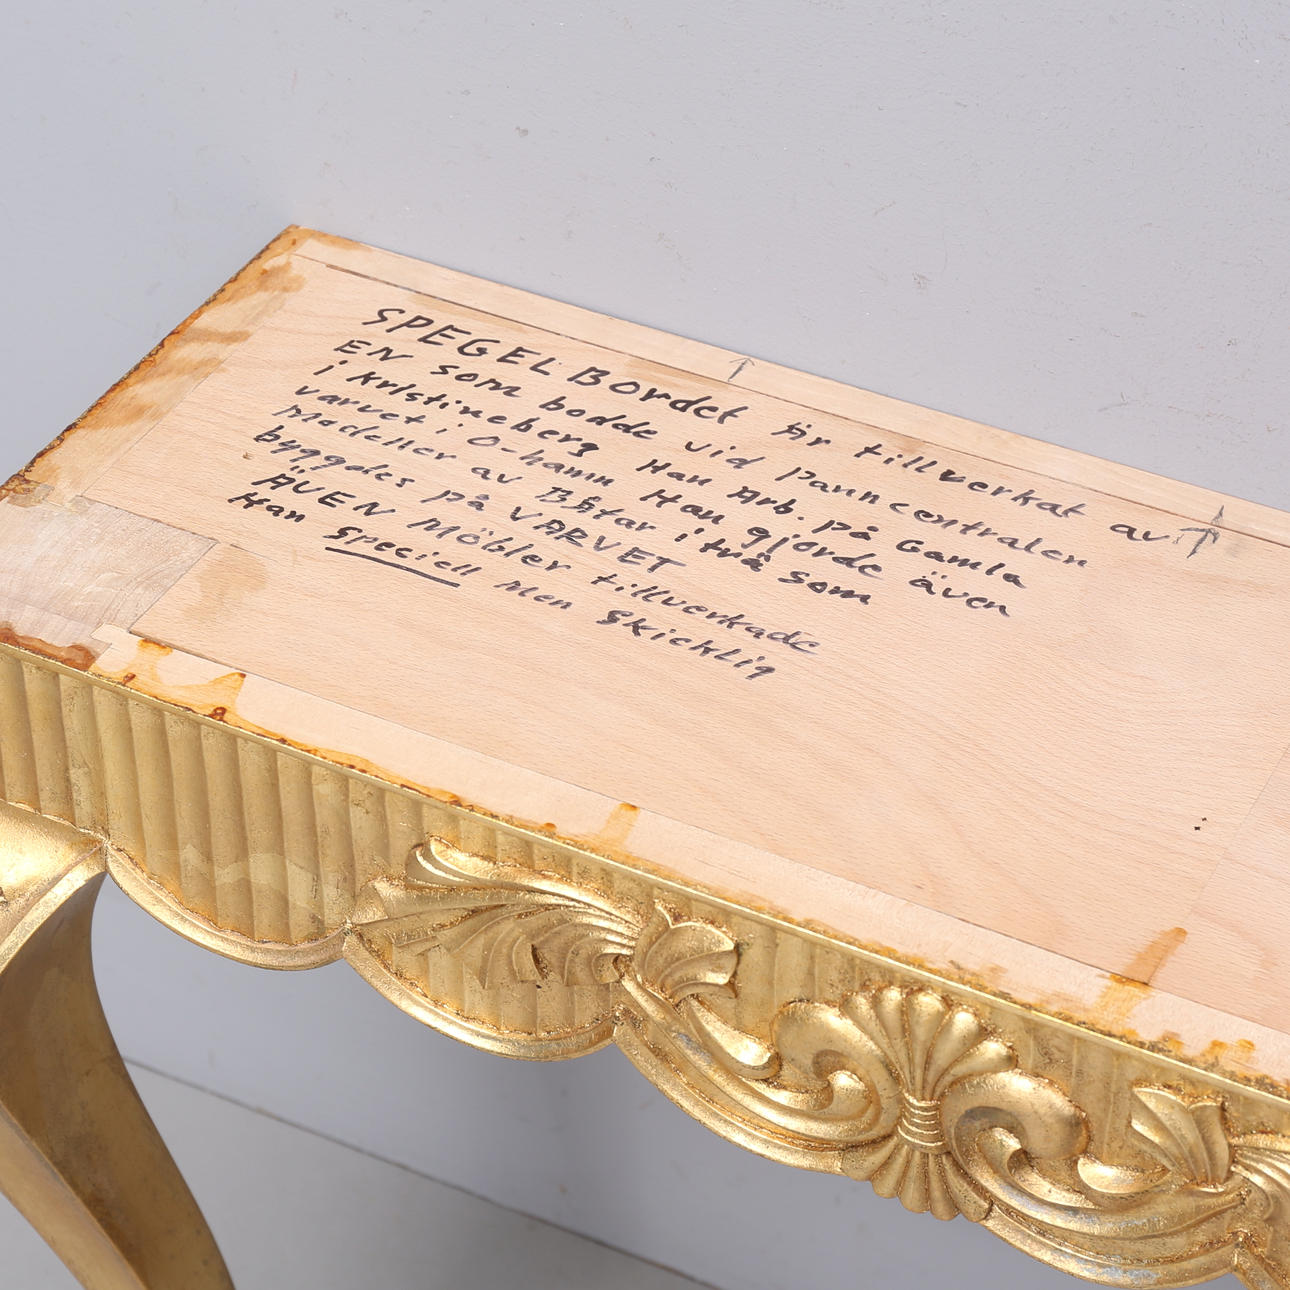 SPEGELBordet är tillverkat av
EN som bodde vid panncentralen
i kristineberg Han Arb. på Gamla
varvet i O-hamn Han gjorde även
Modeller av Båtar i trä som
byggdes på VARVET
ÄVEN Möbler tillverkade
Han Speciell Men Skicklig